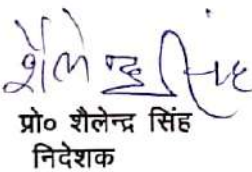 शैलेन्द्र सिंह
प्रो० शैलेन्द्र सिंह
निदेशक